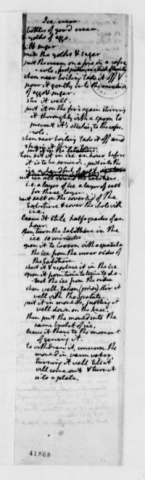 Ice cream
bottles of good cream
yolks of eggs
sugar
put the yolks & sugar
put the cream on a fire in a
when near boiling take it off &
pour it gently into the
stir it well.
put it on the fire again stirring
it thoroughly with a spoon to
prevent it's sticking to the
when near boiling take it off and
then set it in ice an hour before
it is to be served.
ice
i.e. a layer of ice a layer of salt
for three layers.
put salt on the coverlid of the
Sabotiere & cover the whole with
ice.
leave it still half a quarter of an
hour.
then turn the Sabotiere in the
ice 10 minutes
open it to loosen with a spatula
the ice from the inner sides of
the Sabotiere.
shut it & replace it in the ice
open it from time to time to de-
tach the ice from the
when well taken (prise) stir it
well with the Spatula.
put it in moulds, justling it
well down on the knee.
then put the mould into the
same bucket of ice.
leave it there to the moment
of serving it.
to withdraw it, immerse the
mould in warm water,
turning it well till it
will come out & turn it
into a plate.
41868